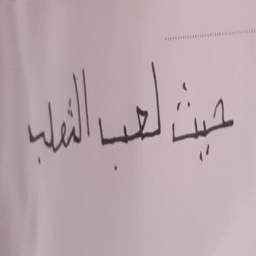 حيث لعب الثعلب